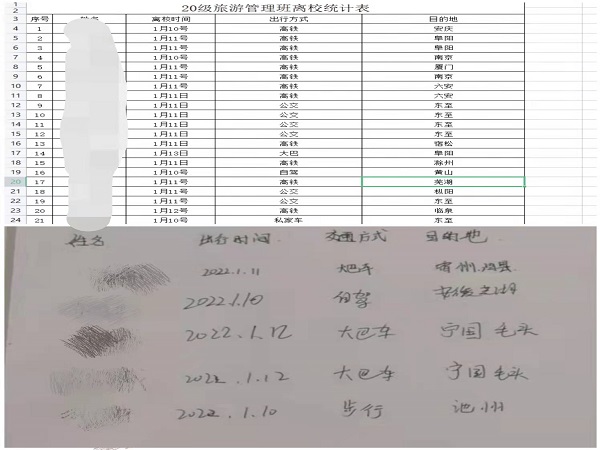 1
2 20级旅游管理班离校统计表
3 序号 离校时间 出行方式 目的地
4 1 1月10号 高铁 安庆
5 2 1月11号 高铁 阜阳
6 3 1月11号 高铁 阜阳
7 4 1月10号 高铁 南京
8 5 1月11号 高铁 厦门
9 6 1月11号 高铁 南京
10 7 1月11号 高铁 六安
11 8 1月11日 高铁 六安
12 9 1月11日 公交 东至
13 10 1月11日 公交 东至
14 11 1月11日 公交 东至
15 12 1月11日 公交 东至
16 13 1月11日 高铁 宿松
17 14 1月13日 大巴 阜阳
18 15 1月11号 高铁 滁州
19 16 1月10号 自驾 黄山
20 17 1月11号 高铁 芜湖
21 18 1月11号 公交 枞阳
22 19 1月11号 公交 东至
23 20 1月12号 高铁 临泉
24 21 1月10号 私家车 东至
姓名 出行时间 交通方式 目的地
2022.1.11 大巴车 宿州
2022.1.10 自驾 安徽芜湖
2022.1.12 大巴车 宁国
2022.1.12 大巴车 宁国
2022.1.10 步行 池州